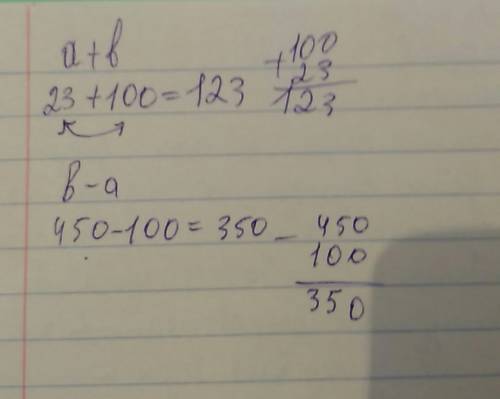 a+b
23+100=123
100
+23
123
b-a
450-100=350
-450
100
350